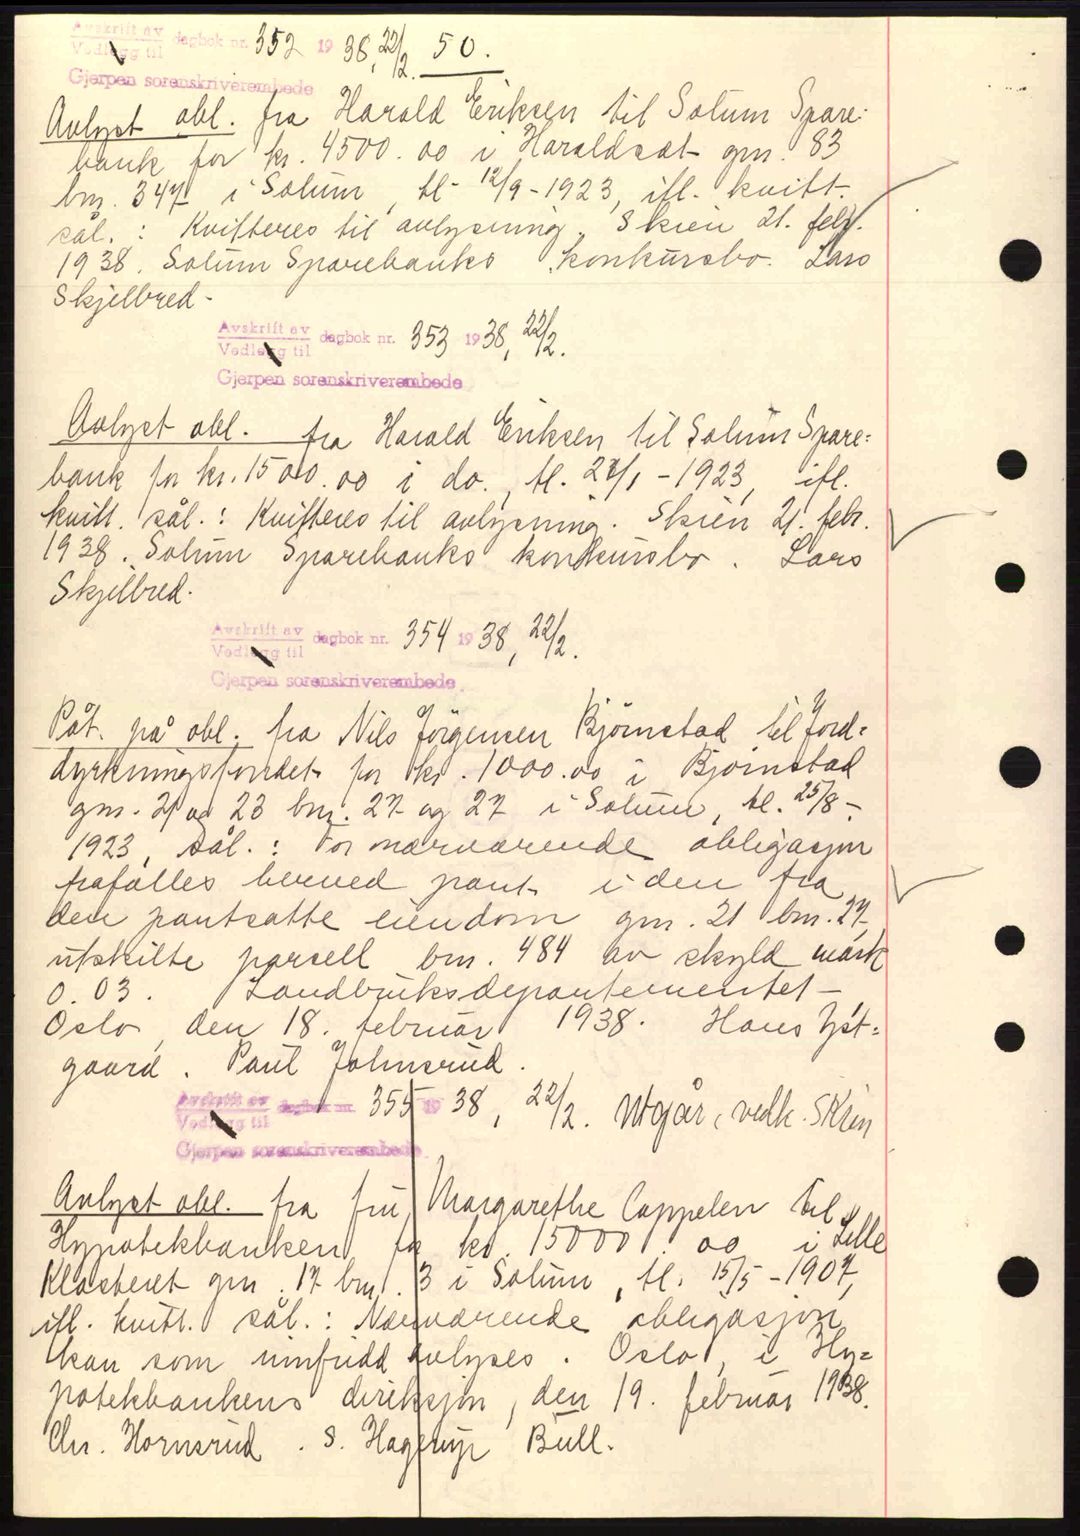 Avskrift av
Vedlegg til dagbok nr. 352 1938, 22/2. 50.
Gjerpen sorenskriverembede
Avlyst obl. fra Harald Eriksen til Solum Spare=
bank for kr. 4500.00 i Haraldsæt gnr. 83
bnr. 347 i Solum, tl. 12/9-1923, ifl. kvitt.
sål.: Kvitteres til avlysning. Skien 21. febr.
1938. Solum Sparebanks konkursbo. Lars
Skjelbred.
Avskrift av
Vedlegg til dagbok nr. 353 1938, 22/2.
Gjerpen sorenskriverembede
Avlyst obl. fra Harald Eriksen til Solum Spare=
bank for kr. 1500.00 i do., tl. 27/1-1923, ifl.
kvitt. sål.: Kvitteres til avlysning. Skien 21. febr.
1938. Solum Sparebanks konkursbo. Lars
Skjelbred.
Avskrift av
Vedlegg til dagbok nr. 354 1938, 22/2.
Gjerpen sorenskriverembede
Påt. på obl. fra Nils Jörgensen Bjørnstad til Jord=
dyrkningsfondet for kr. 1000.00 i Bjørnstad
gnr. 21 og 23 bnr. 27 og 27 i Solum, tl. 25/8-
1923, sål.: For nærværende obligasjon
frafalles herved pant i den fra
den pantsatte eiendom gnr. 21 bnr. 27
utskilte parsell bnr. 484 av skyld mark
0.03. Landbruksdepartementet
Oslo, den 18. februar 1938. Hans Yst=
gaard. Paul Johnsrud.
Avskrift av
Vedlegg til dagbok nr. 355 1938, 22/2. Utgår, vedk. Skien
Gjerpen sorenskriverembede
Avlyst obl. fra fru Margarethe Cappelen til
Hypotekbanken for kr. 15000.00 i Lille
Klosteret gnr. 17 bnr. 3 i Solum, tl. 15/5-1907,
ifl. kvitt. sål.: Nærværende obligasjon
kan som innfridd avlyses. Oslo, i Hy=
potekbankens direksjon, den 19. februar 1938.
Chr. Hornsrud. S. Hagerup Bull.